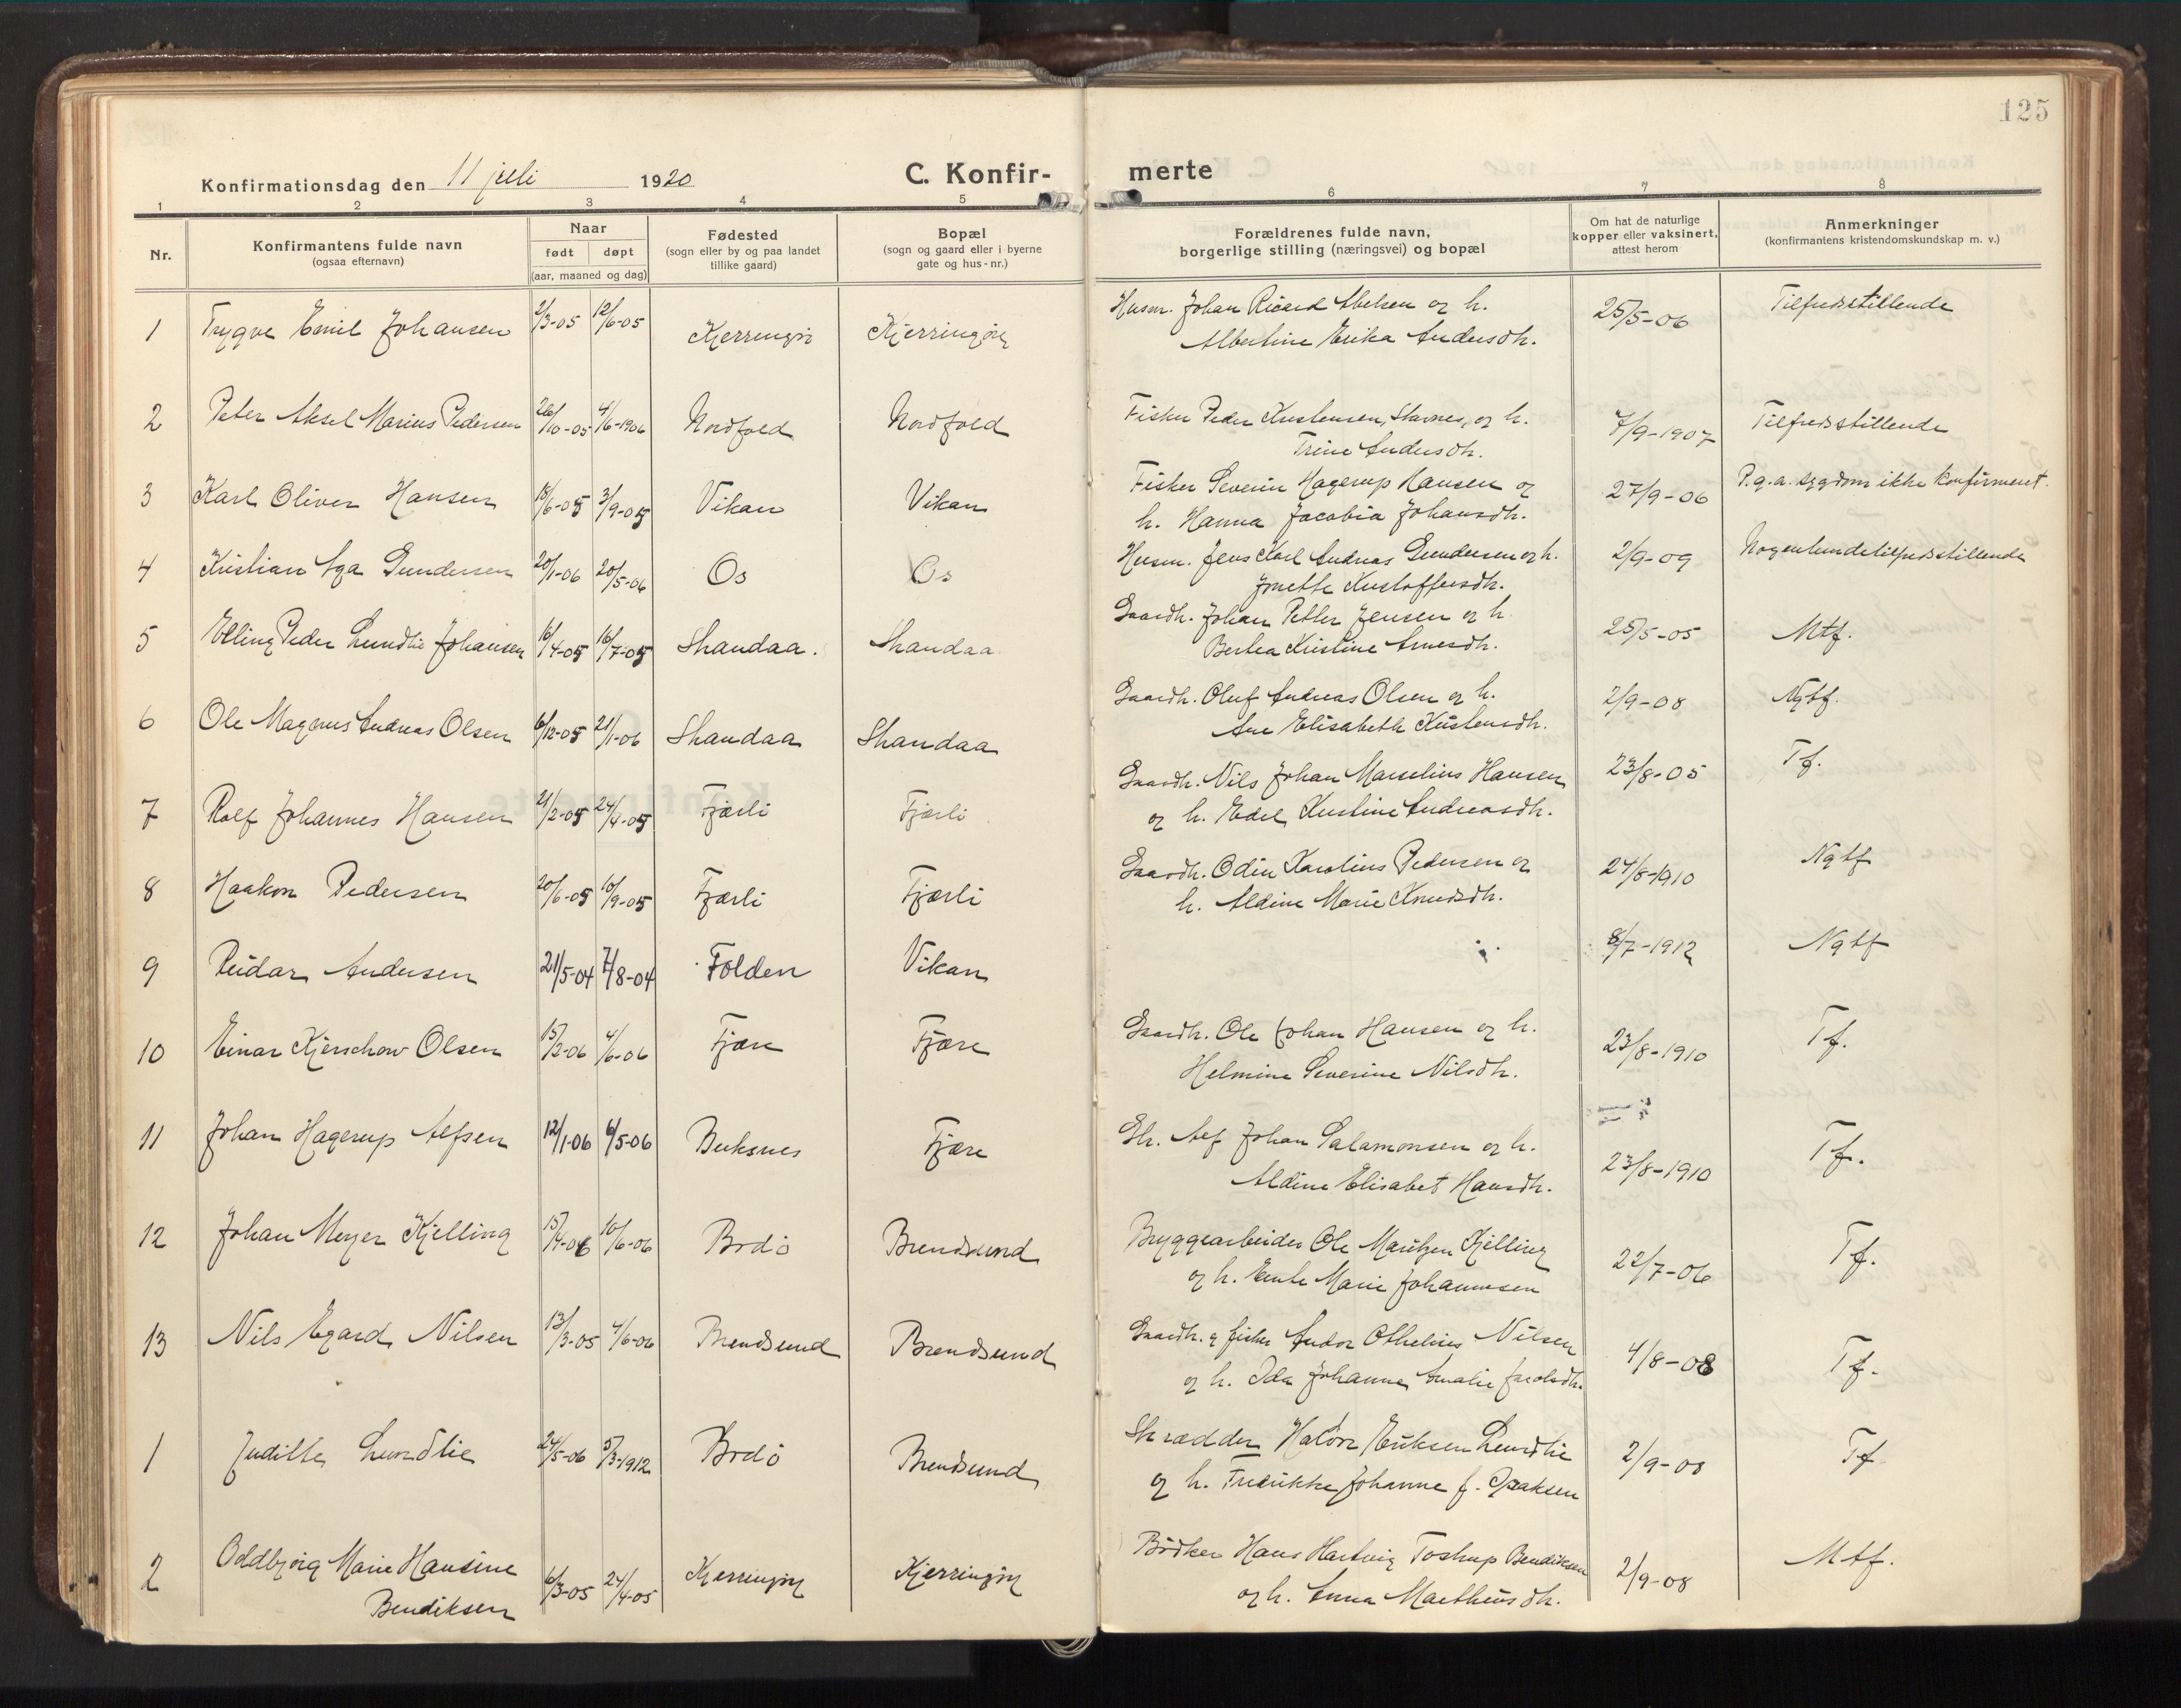 125
Konfirmationsdag den 11 juli 1920 C. Konfir- merte
1 2 3 4 5 6 7 8
Nr. Konfirmantens fulde navn (ogsaa efternavn) Naar født døpt (aar, maaned og dag) Fødested (sogn eller by og paa landet tillike gaard) Bopæl (sogn og gaard eller i byerne gate og hus-nr.) Forældrenes fulde navn, borgerlige stilling (næringsvei) og bopæl Om hat de naturlige kopper eller vaksinert, attest herom Anmerkninger (konfirmantens kristendomskundskap m. v.)
1 Trygve Emil Johansen 2/3-05 12/6-05 Kjerringø Kjerringøy Husm. Johan Ricard Abelsen og h. 25/5-06 Tilfredsstillende
Albertine Erika Andersdh.
2 Peter Aksel Marius Pedersen 26/10-05 4/6-1906 Nordfold Nordfold Fisker Peder Kristensen, Stavnes, og h. 7/9-1907 Tilfredsstillende
Trine Andersdh.
3 Karl Oliver Hansen 18/6-05 3/9-05 Vikan Vikan Fisker Severin Hagerup Hansen og 27/9-06 P.g.a. sygdom ikke konfirmert.
h. Hanna Jacobia Johansdh.
4 Kristian Aga Gundersen 20/1-06 20/5-06 Os Os Husm. Jens Karl Andreas Gundersen og h. 2/9-09 Nogenlunde tilfredsstillende
Jonette Kristoffersdh.
5 Elling Peder Lundlie Johansen 16/4-05 16/7-05 Skandaa. Skandaa Gaardb. Johan Petter Jensen og h. 25/5-05 Mtf.
Bertea Kristine Arnesdh.
6 Ole Magnus Andreas Olsen 6/12-05 21/1-06 Skandaa Skandaa Gaardb. Oluf Andreas Olsen og h. 2/9-08 Ngtf.
Ane Elisabeth Kristensdh.
7 Rolf Johannes Hansen 21/2-05 24/4-05 Fjærli Fjærli Gaardb. Nils Johan Marselius Hansen 23/8-05 Tf.
og h. Edel Kristine Andreasdh.
8 Haakon Pedersen 20/6-05 10/9-05 Fjærli Fjærli Gaardb. Odin Karolius Pedersen og 24/8-1910 Ngtf
h. Aldine Marie Knudsdh.
9 Reidar Andersen 21/5-04 7/8-04 Folden Vikan 8/7-1912 Ngtf
10 Einar Kjerschow Olsen 15/2-06 4/6-06 Fjære Fjære Gaardb. Ole Johan Hansen og h. 23/8-1910 Tf.
Helmine Severine Nilsdh.
11 Johan Hagerup Alfsen 12/1-06 6/5-06 Buksnes Fjære Gb. Alf Johan Salamonsen og h. 23/8-1910 Tf.
Aldine Elisabet Hansdh.
12 Johan Meyer Kjelling 15/4-06 10/6-06 Bodø Brendsund Bryggearbeider Ole Maritzen Kjelling 22/7-06 Tf.
og h. Marie Johannesen
13 Nils Egard Nilsen 13/3-05 4/6-06 Brendsund Brendsund Gaardb. og fisker Andor Othelius Nilsen 4/8-08 Tf.
og h. Ida Johanne Amalie Jacobsdh.
1 Judithe Lundlie 24/5-06 5/3-1912 Bodø Brendsund Skrædder Haldor Eriksen Lundlie 2/9-08 Tf
og h. Fredrikke Johanne f. Isaksen
2 Oddbjørg Marie Hansine 6/3-05 24/4-05 Kjerringøy Kjerringøy Bødker Hans Hartvig Tostrup Bendiksen 2/9-08 Mtf.
Bendiksen og h. Anna Matheusdh.